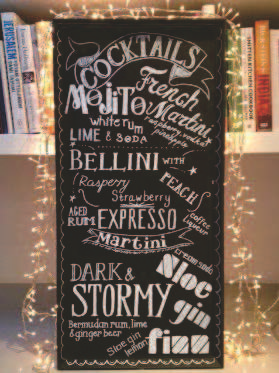 COCKTAILS
MOJITO
white rum
LIME & SODA
French
Martini
raspberry, vodka
pineapple
BELLINI WITH
PEACH
Rasperry
Strawberry
AGED
RUM
EXPRESSO
Martini
coffee
Liqueur
DARK &
STORMY
Bermudan rum, lime
& ginger beer
Sloe
gin
fizz
cream soda
Sloe gin
lemon
JERUSALEM